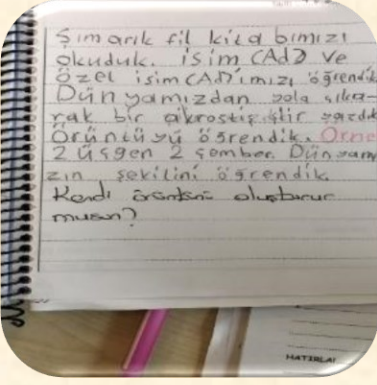 Şımarık fil kitabımızı
okuduk. isim (Ad) ve
özel isim (Ad)'ımızı öğrendik
Dünyamızdan yola çıka-
rak bir akrostiş şiir yazdık
Örüntüyü öğrendik. Örne
2 üçgen 2 çember. Dünyam
zın şeklini öğrendik
Kendi örüntünü oluşturur
musun?
HATIRLA!